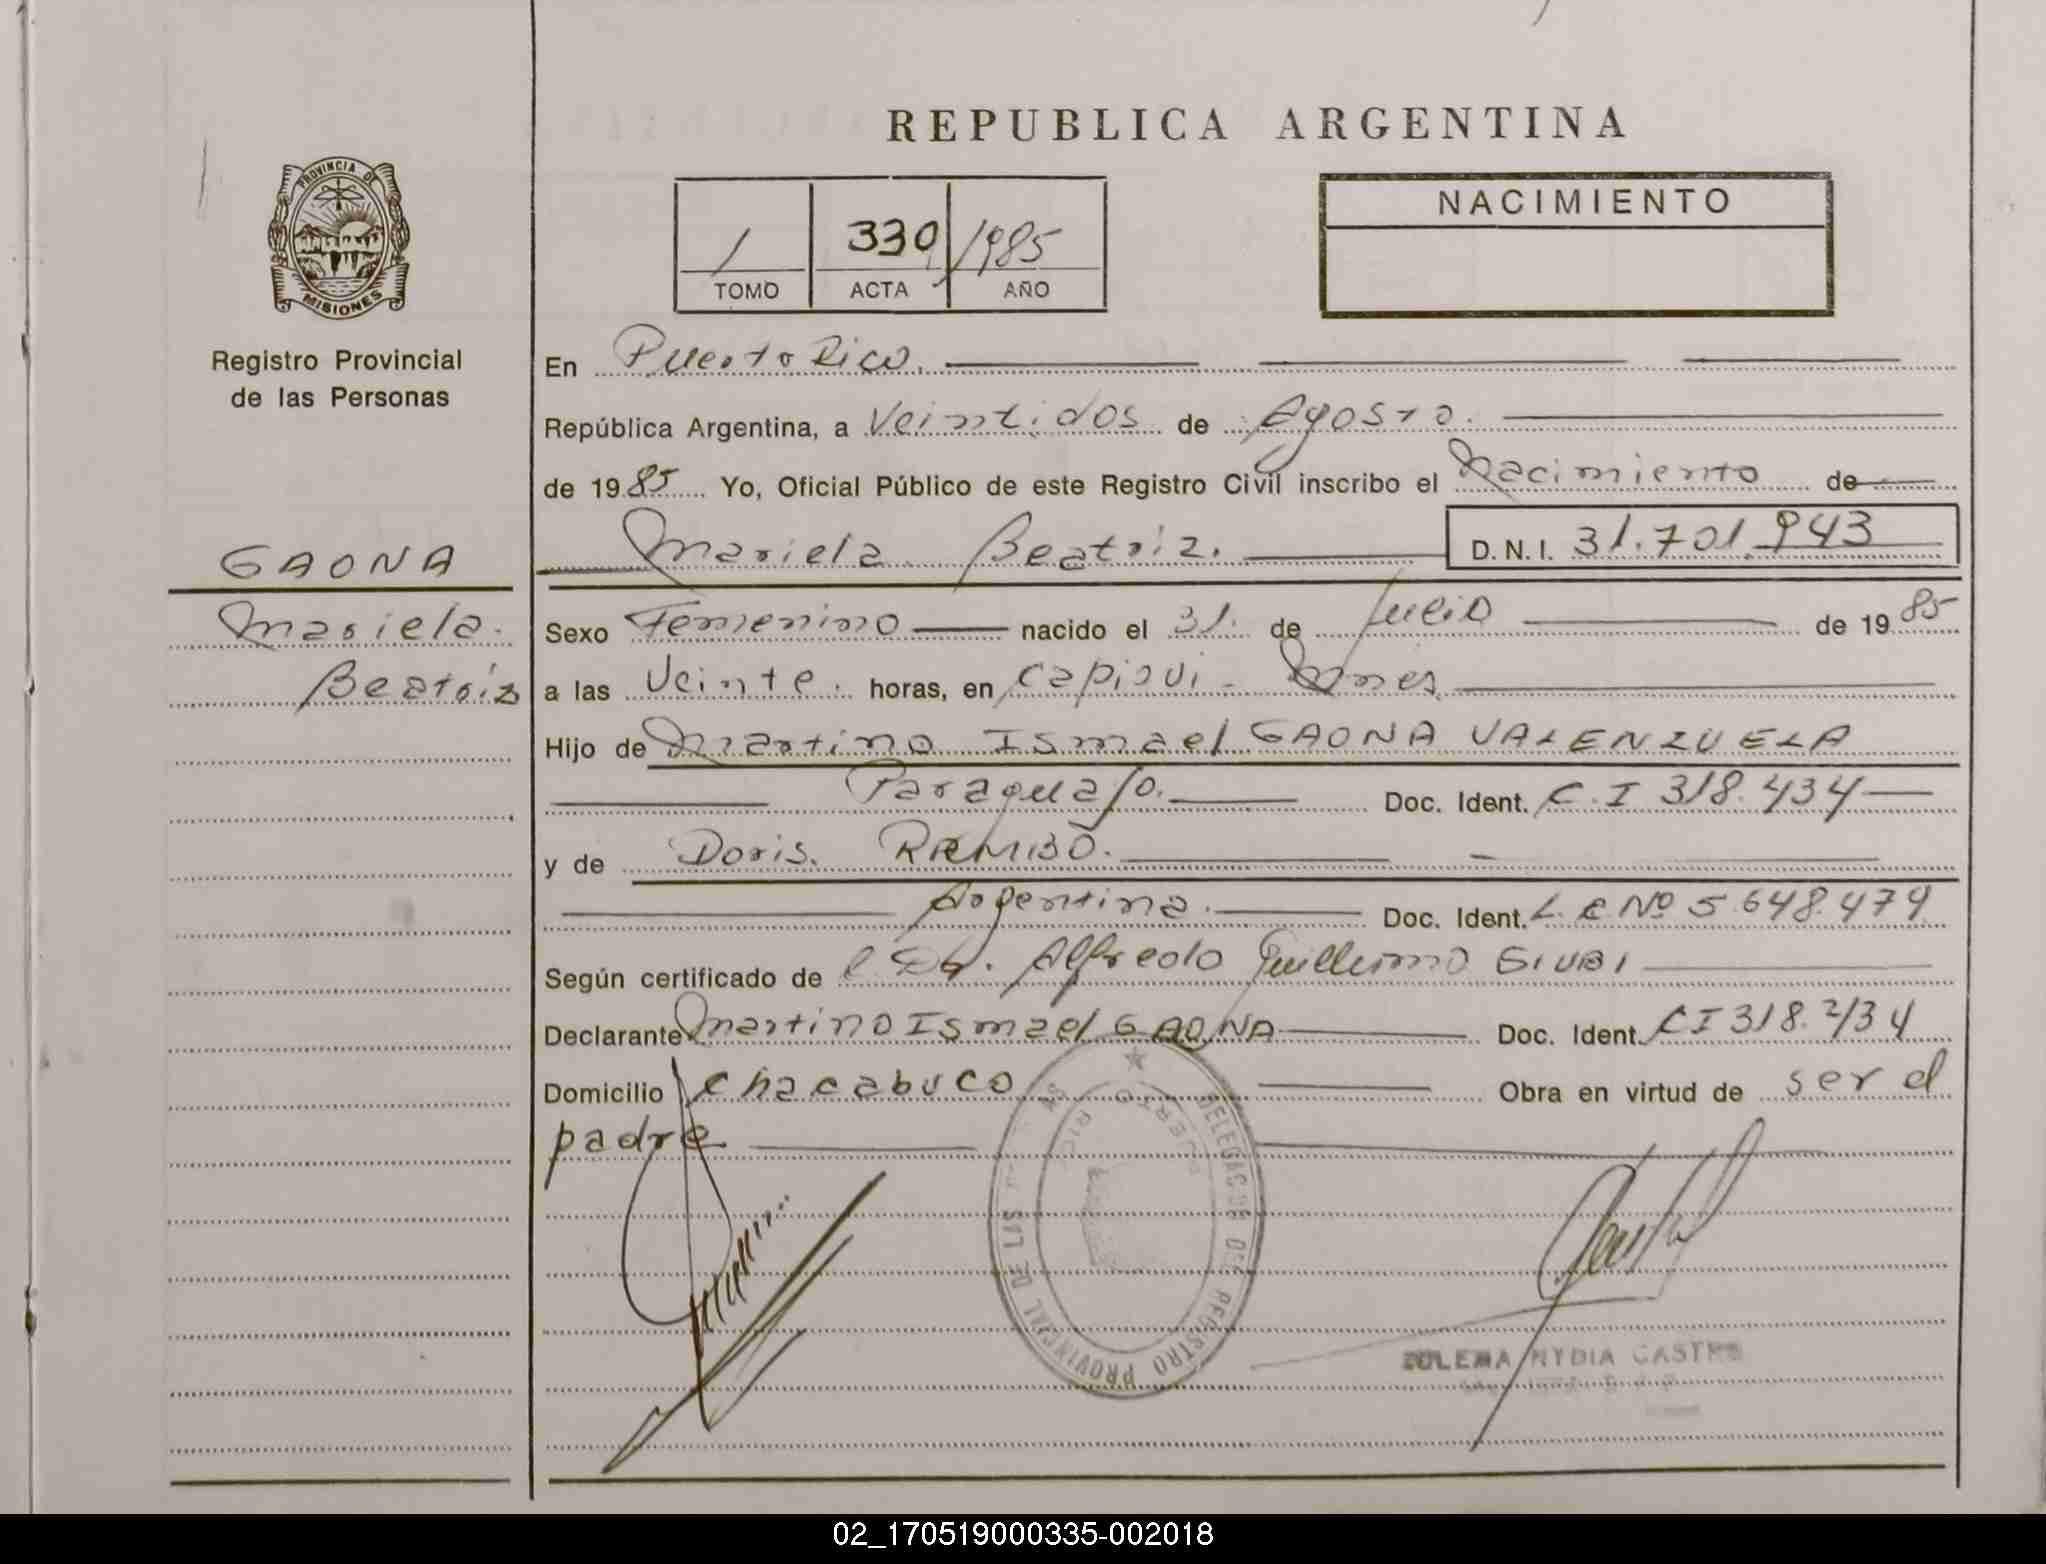 REPUBLICA ARGENTINA
PROVINCIA DE
MISIONES
Registro Provincial
de las Personas
NACIMIENTO
1 330 1985
TOMO ACTA AÑO
En Puerto Rico.
República Argentina, a Veintidos de Agosto.
de 1985 Yo, Oficial Público de este Registro Civil inscribo el Nacimiento de
GAONA
Mariela Beatriz. D.N.I. 31.701.943
Mariela.
Beatriz
Sexo Femenino nacido el 31. de Julio de 1985
a las Veinte. horas, en Capiovi - Mnes.
Hijo de Martino Ismael GAONA VALENZUELA
Paraguayo. Doc. Ident. C.I 318.434
y de Doris. RAMBO.
Argentina. Doc. Ident. L.C.Nº 5.648.479
Según certificado de l Dr. Alfredo Guillermo GIUBI
Declarante Martino Ismael GAONA Doc. Ident. CI 318.434
Domicilio Chacabuco Obra en virtud de ser el
padre
PUERTO RICO
REGISTRO PROVINCIAL DE LAS
NYDIA CASTRO
02_170519000335-002018